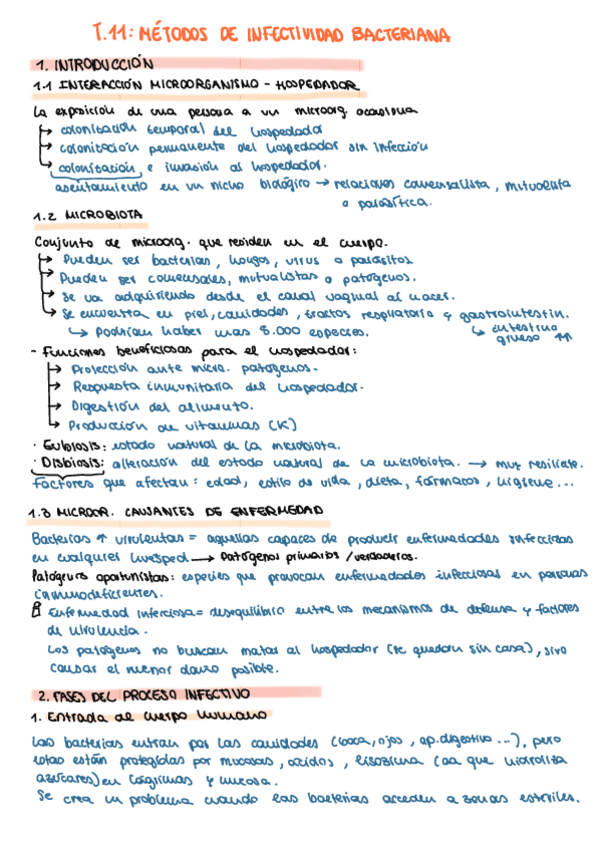 T.11: MÉTODOS DE INFECTIVIDAD BACTERIANA
1. INTRODUCCIÓN
1.1 INTERACCIÓN MICROORGANISMO - HOSPEDADOR
La exposición de una persona a un microorg. ocasiona
↳ colonización temporal del hospedador
↳ colonización permanente del hospedador sin infección
↳ colonización e invasión al hospedador.
asentamiento en un nicho biológico → relaciones comensalista, mutualista
o parasítica.
1.2 MICROBIOTA
Conjunto de microorg. que residen en el cuerpo.
↳ Pueden ser bacterias, hongos, virus o parásitos
↳ Pueden ser comensales, mutualistas o patógenos.
↳ Se va adquiriendo desde el canal vaginal al nacer.
↳ Se encuentra en piel, cavidades, tractos respiratorio y gastrointestin.
↳ Podrían haber mas 8.000 especies. ↳ intestino
grueso ↑↑
- Funciones beneficiosas para el hospedador:
↳ Protección ante micro. patógenos.
↳ Respuesta inmunitaria del hospedador.
↳ Digestión del alimento.
↳ Producción de vitaminas (K)
· Eubiosis: estado natural de la microbiota.
· Disbiosis: alteración del estado natural de la microbiota. → muy resiliente.
Factores que afectan: edad, estilo de vida, dieta, fármacos, higiene...
1.3 MICROOR. CAUSANTES DE ENFERMEDAD
Bacterias ↑ virulentas = aquellas capaces de producir enfermedades infecciosas
en cualquier huesped → Patógenos primarios / verdaderos.
Patógenos oportunistas: especies que provocan enfermedades infecciosas en personas
inmunodeficientes.
Enfermedad infecciosa = desequilibrio entre los mecanismos de defensa y factores
de virulencia.
Los patógenos no buscan matar al hospedador (se quedan sin casa), sino
causar el menor daño posible.
2. FASES DEL PROCESO INFECTIVO
1. Entrada al cuerpo humano
Las bacterias entran por las cavidades (boca, ojos, ap. digestivo...), pero
estas están protegidas por mucosas, ácidos, lisozima (aa que hidroliza
azúcares) en lágrimas y mucosa.
Se crea un problema cuando las bacterias acceden a zonas estériles.